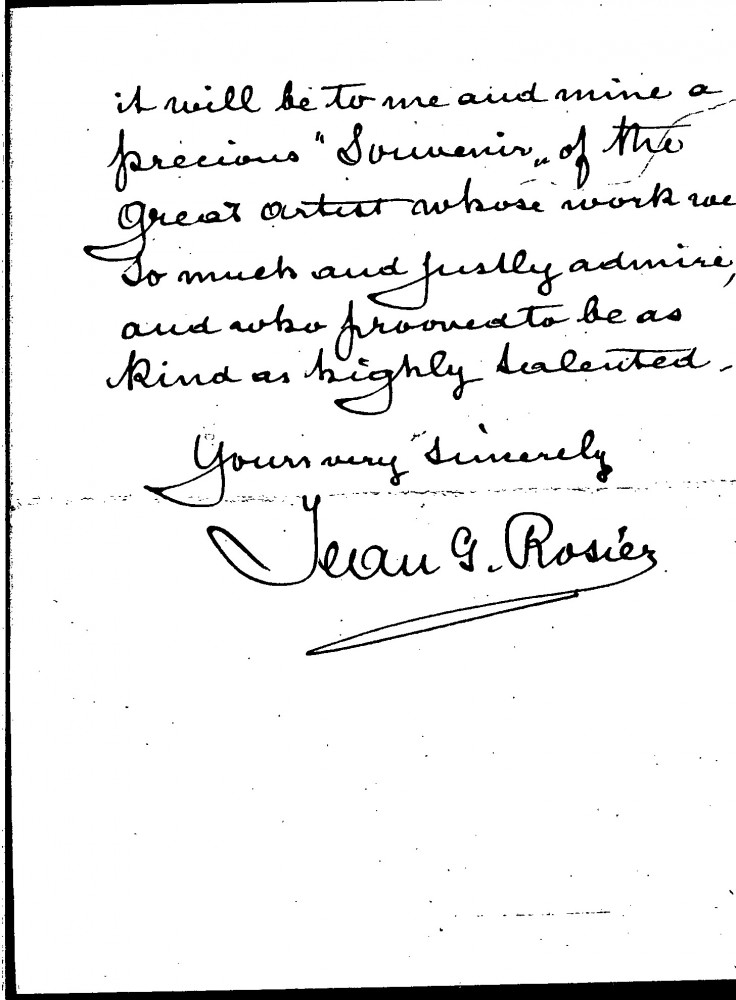 it will be to me and mine a
precious "Souvenir„ of the
Great artist whose work we
So much and justly admire,
and who prooved to be as
kind as highly talented.
Yours very sincerely
Jean G. Rosier